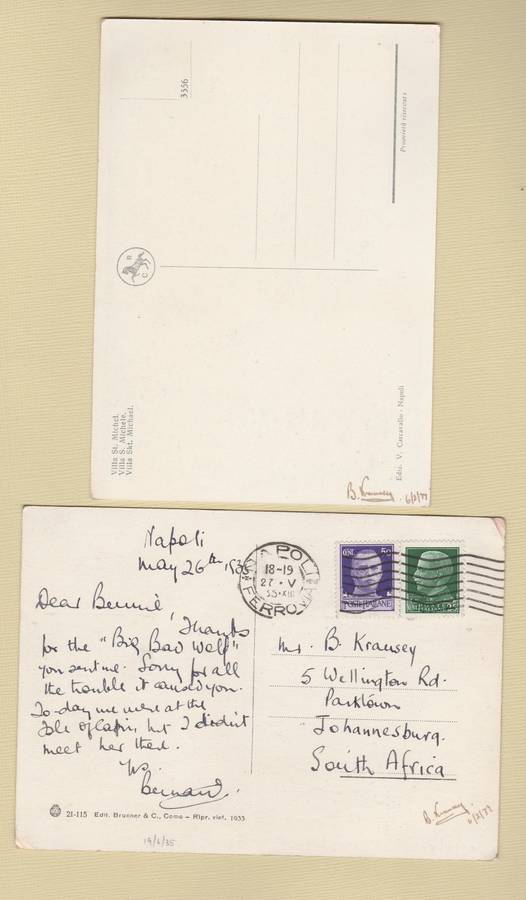 3556
Proprietà riservata
B C
Villa St. Michel.
Villa S. Michele.
Villa Skt. Michael.
Ediz. V. Carcavallo - Napoli
B. Krausey 6/2/77
Napoli
May 26th, 1935
Dear Bennie,
Thanks
for the "Big Bad Wolf"
you sent me. Sorry for all
the trouble it caused you.
To-day we were at the
Isle of Capri, but I didn't
meet her there.
Yrs.
Bernard.
21-115 Edit. Brunner & C., Como – Ripr. viet. 1933
19/6/35
NAPOLI
18-19
27 · V
35·XIII
FERROVIA
CENT. 50
POSTE ITALIANE
25
Mr. B. Krausey
5 Wellington Rd.
Parktown
Johannesburg.
South Africa
B. Krausey 6/2/77